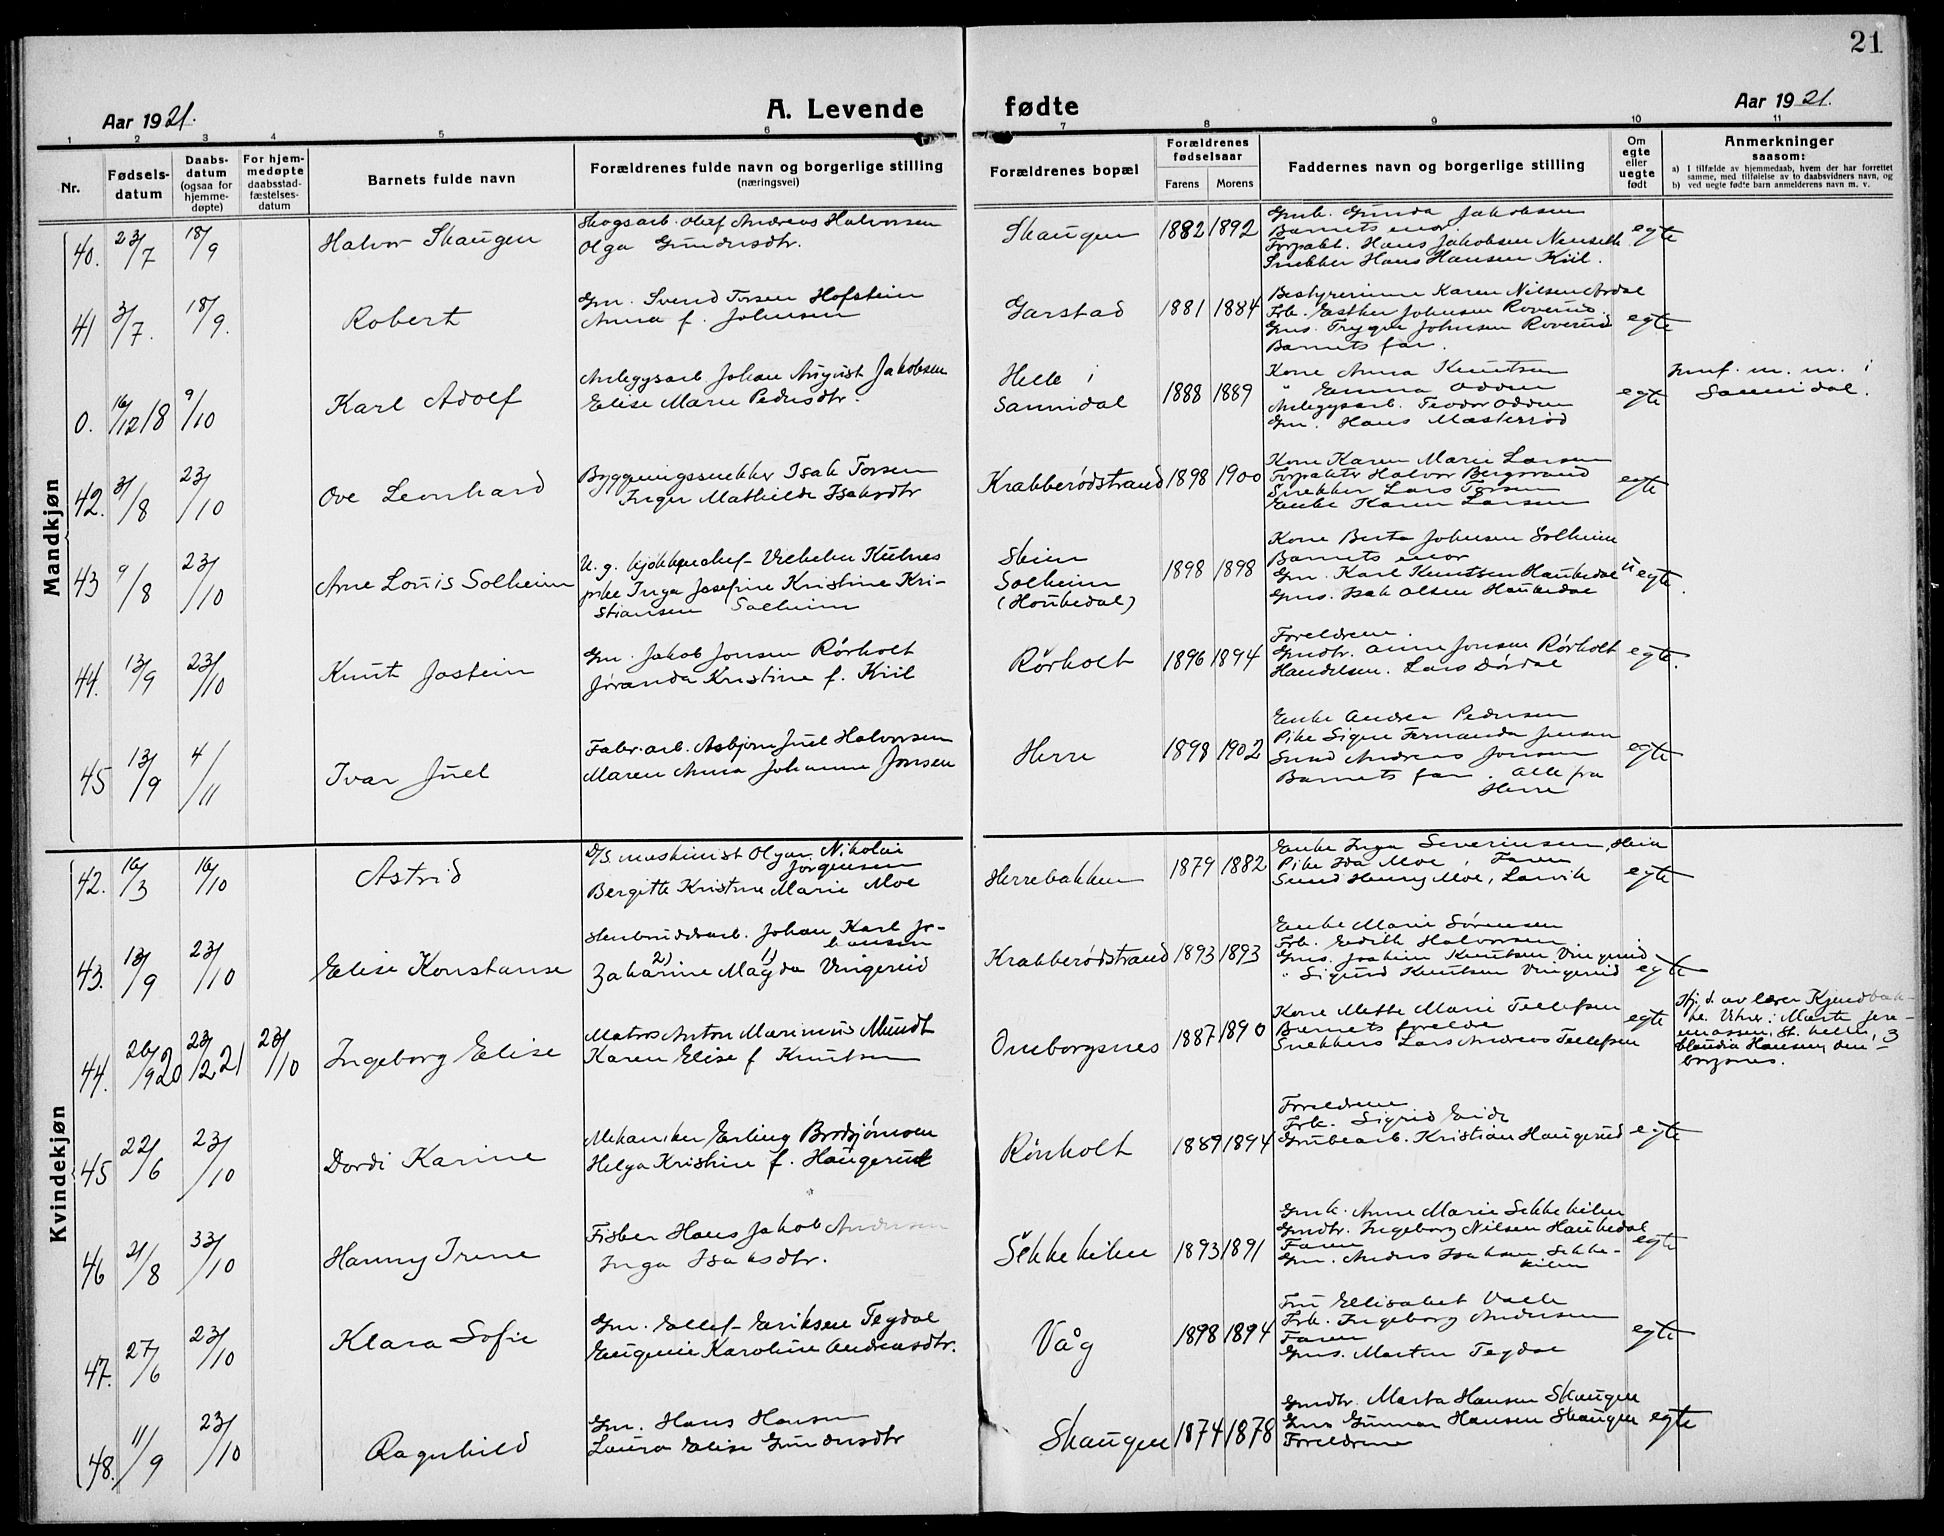 21
Aar 1921.
A. Levende
fødte
Aar 1921.
1 2 3 4 5 6 7 8 9 10 11
Nr.
Fødsels-
datum
Daabs-
datum
(ogsaa for
hjemme-
døpte)
For hjem-
medøpte
daabsstad-
fæstelses-
datum
Barnets fulde navn
Forældrenes fulde navn og borgerlige stilling
(næringsvei)
Forældrenes bopæl
Forældrenes
fødselsaar
Farens
Morens
Faddernes navn og borgerlige stilling
Om
egte
eller
uegte
født
Anmerkninger
saasom:
a) I tilfælde av hjemmedaab, hvem der har forrettet
samme, med tilføielse av to daabsvidners navn, og
b) ved uegte fødte barn anmelderens navn m. v.
Mandkjøn
40. 23/7 18/9 Halvor Skaugen
Skogsarb. Olaf Andreas Halvorsen
Olga Gundersdtr.
Skaugen 1882 1892
Gmk. Gunda Jakobsen
Barnets mor
Forpakt. Hans Jakobsen Nenseth
Snekker Hans Hansen Kiil.
egte
41 3/7. 18/9. Robert
Gm. Svend Torsen Hofstein
Anna f. Johnsen
Garstad 1881 1884
Bestyrerinne Karen Nilsen Årdal
Frk. Esther Johnsen Roverud
Gms. Trygve Johnsen Roverud
Barnets far.
egte
0. 16/12 18 9/10 Karl Adolf
Anlegsarb Johan August Jakobsen
Elise Marie Pedersdtr.
Helle i
Sannidal 1888 1889
Kone Anna Knutsen
" Emma Odden
Anlegsarb. Teodor Odden
Gm. Hans Masterrød
egte
m. m. i
Sannidal.
42. 31/8 23/10 Ove Leonhard
Bygningssnekker Isak Torsen
Inger Mathilde Isaksdtr
Krabberødstrand 1898 1900
Kone Karen Marie Larsen
Forpakter Halvor Bergsrand
Snekker Lars Torsen
Enke Karen Larsen
egte
43 9/8 23/10 Arne Louis Solheim
U. g. kjøkkenchef Vilhelm Kulnes
pike Inga Josefine Kristine Kri-
stiansen Solheim
Skien
Solheim
(Houkedal) 1898 1898
Kone Berta Johnsen Solheim
Barnets mor
Gm. Karl Knutsen Haukedal
Gms. Isak Olsen Haukedal
uegte.
44. 13/9 23/10 Knut Jostein
Gm. Jakob Jonsen Rørholt
Jøranda Kristine f. Kiil
Rørholt 1896 1894
Foreldrene.
Gmdtr. Anne Jonsen Rørholt
Handelsm. Lars Dørdal
egte.
45 13/9 4/11 Ivar Juel
Fabr. arb. Asbjørn Juel Halvorsen
Maren Anna Johanne Jonsen
Herre 1898 1902
Enke Andrea Pedersen
Pike Signe Fernanda Jensen
Smed Andreas Jonsen
Barnets far. Alle fra
Herre
egte
Kvindekjøn
42. 16/3 16/10 Astrid
D/S maskinist Olgar Nikolai
Jørgensen
Bergitte Kristine Marie Moe
Herrebakken 1879 1882
Enke Inga Severinsen, Skien
Pike Ida Moe, Faren
Smed Henry Moe, Larvik
egte
43. 13/9 23/10 Elise Konstanse
Stenbruddsarb. Johan Karl Jo-
hansen
2) 1)
Zakarine Magda Vingereid
Krabberødstrand 1893 1893
Enke Marie Sørensen
Frk. Edith Halvorsen
Gms. Joakim Knutsen Vingereid
" Sigurd Knutsen Vingereid
egte
44. 26/9 20 23/12 21 23/10 Ingeborg Elise
Matros Anton Marinius Mundt
Karen Elise f Knutsen
Omborgsnes 1887 1890
Kone Mette Marie Tellefsen
Barnets forelde
Snekkers Lars Andreas Tellefsen
egte
Hj. d. av lærer Kjendbak-
ke. Vitner: Marte Jere-
miassen, St. kelen, 3
Claudia Hansen, Om-
borgsnes.
45 22/6 23/10 Dordi Karine
Mekaniker Erling Brodsjømoen
Helga Kristine f. Haugerud
Rørholt 1889 1894
Foreldrene
Frk. Sigrid Eide
Grubearb. Kristian Haugerud
egte
46 21/8 33/10 Hanny Irene
Fisker Hans Jakob Andersen
Inga Isaksdtr.
Sekkekilen 1893 1891
Gmk. Anne Marie Sekkekilen
Gmdtr. Ingeborg Nilsen Haukedal
Faren
Gm. Anders Isaksen Sekke-
kilen
egte
47. 27/6 23/10 Klara Sofie
Gm. Ellef Eriksen Tegdal
Eugenie Karoline Andreasdtr.
Våg 1898 1894
Fru Ellisabet Valle
Frk. Ingeborg Andersen
Faren
Gms. Martin Tegdal
egte
48. 11/9 23/10 Ragnhild
Gm. Hans Hansen
Laura Elise Gundersdtr
Skaugen 1874 1878
Gmdtr. Marta Hansen Skaugen
Gms Gunnar Hansen Skaugen
Foreldrene
egte